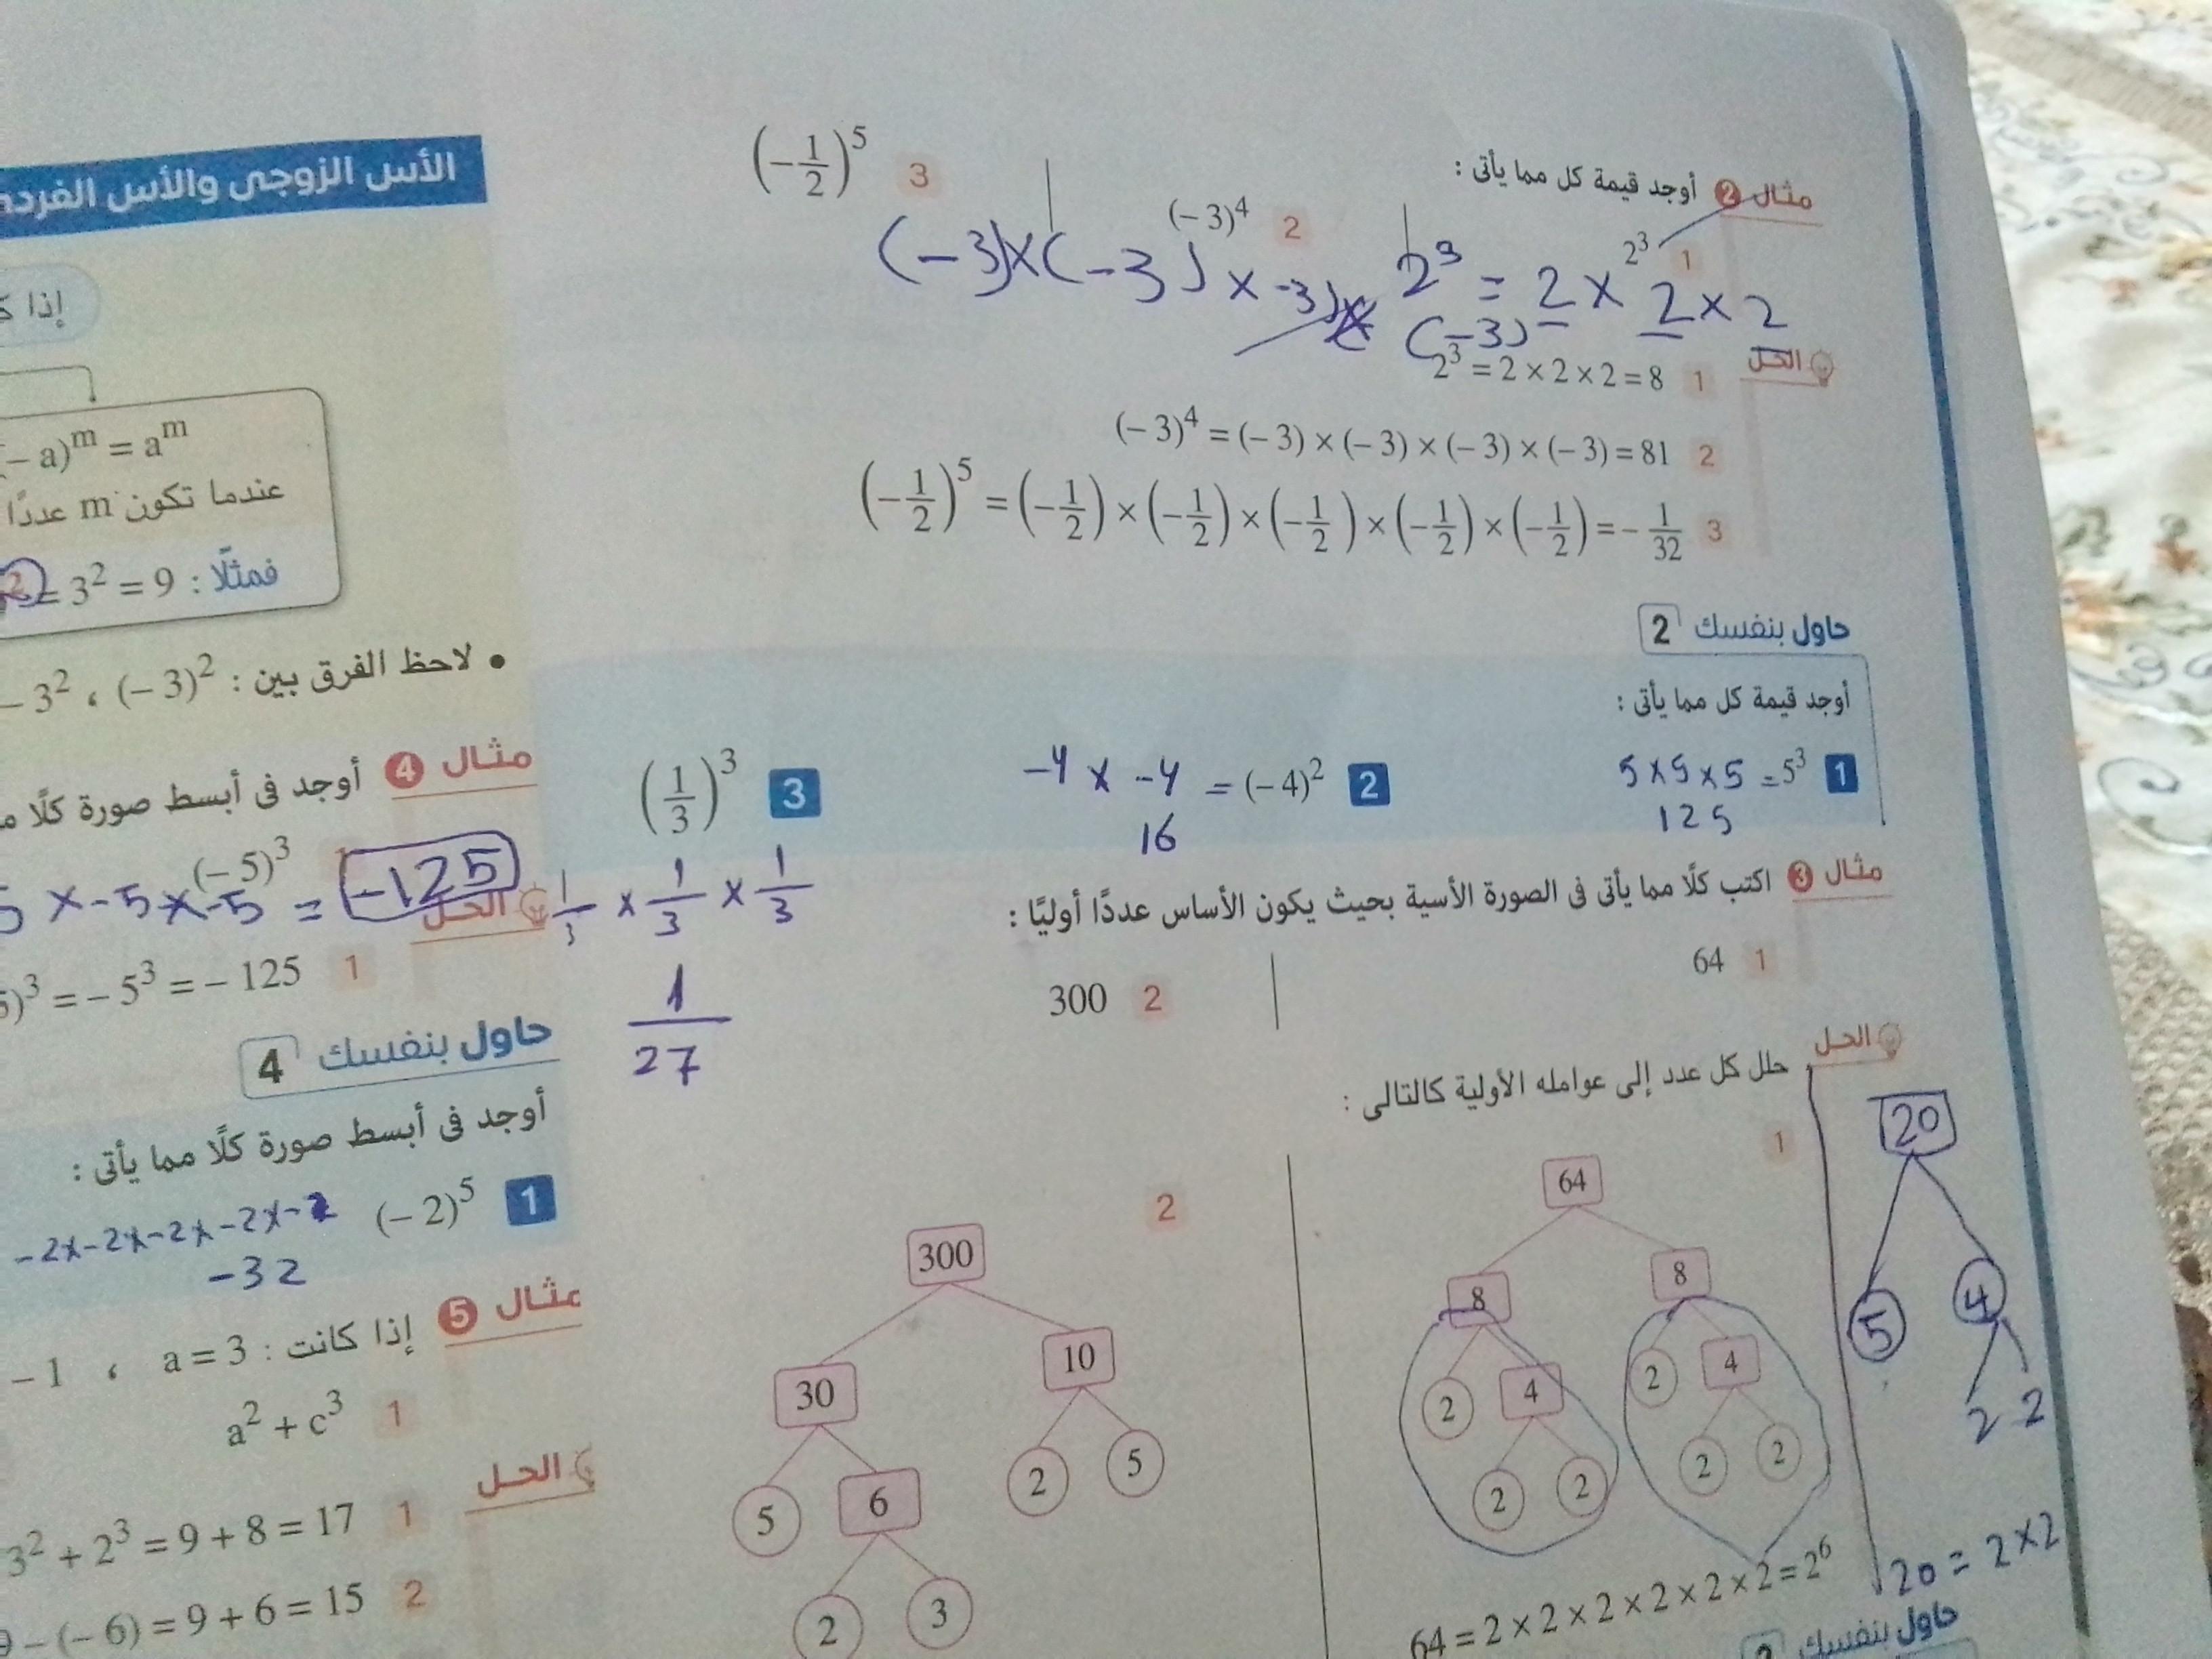 مثال 2 أوجد قيمة كل مما يأتى :
1 2³
2 (−3)⁴
3 (−1/2)⁵
2³ = 2 × 2 × 2
(−3)×(−3) × −3) × (−3)
الحل
1 2³ = 2 × 2 × 2 = 8
2 (−3)⁴ = (−3) × (−3) × (−3) × (−3) = 81
3 (−1/2)⁵ = (−1/2) × (−1/2) × (−1/2) × (−1/2) × (−1/2) = −1/32
حاول بنفسك 2
أوجد قيمة كل مما يأتى :
1 5³ = 5 × 5 × 5
125
2 (−4)² = −4 × −4
16
3 (1/3)³
1/3 × 1/3 × 1/3
1/27
مثال 3 اكتب كلًا مما يأتى فى الصورة الأسية بحيث يكون الأساس عددًا أوليًا :
1 64
2 300
الحل
حلل كل عدد إلى عوامله الأولية كالتالى :
1
64
8 8
2 4 2 4
2 2 2 2
64 = 2 × 2 × 2 × 2 × 2 × 2 = 2⁶
20
5 4
2 2
20 = 2×2
2
300
30 10
5 6 2 5
2 3
حاول بنفسك
الأس الزوجى والأس
إذا
−a)ᵐ = aᵐ
عندما تكون m عددًا
فمثلًا : = 3² = 9
• لاحظ الفرق بين : (−3)² ، −3²
مثال 4 أوجد فى أبسط صورة كلًا
(−5)³
× −5 × −5 = −125
الحل
1 )³ = −5³ = −125
حاول بنفسك 4
أوجد فى أبسط صورة كلًا مما يأتى :
1 (−2)⁵
−2×−2×−2×−2×−2
−32
مثال 5 إذا كانت : a = 3 ، −1
1 a² + c³
الحل
1 3² + 2³ = 9 + 8 = 17
2 − (−6) = 9 + 6 = 15